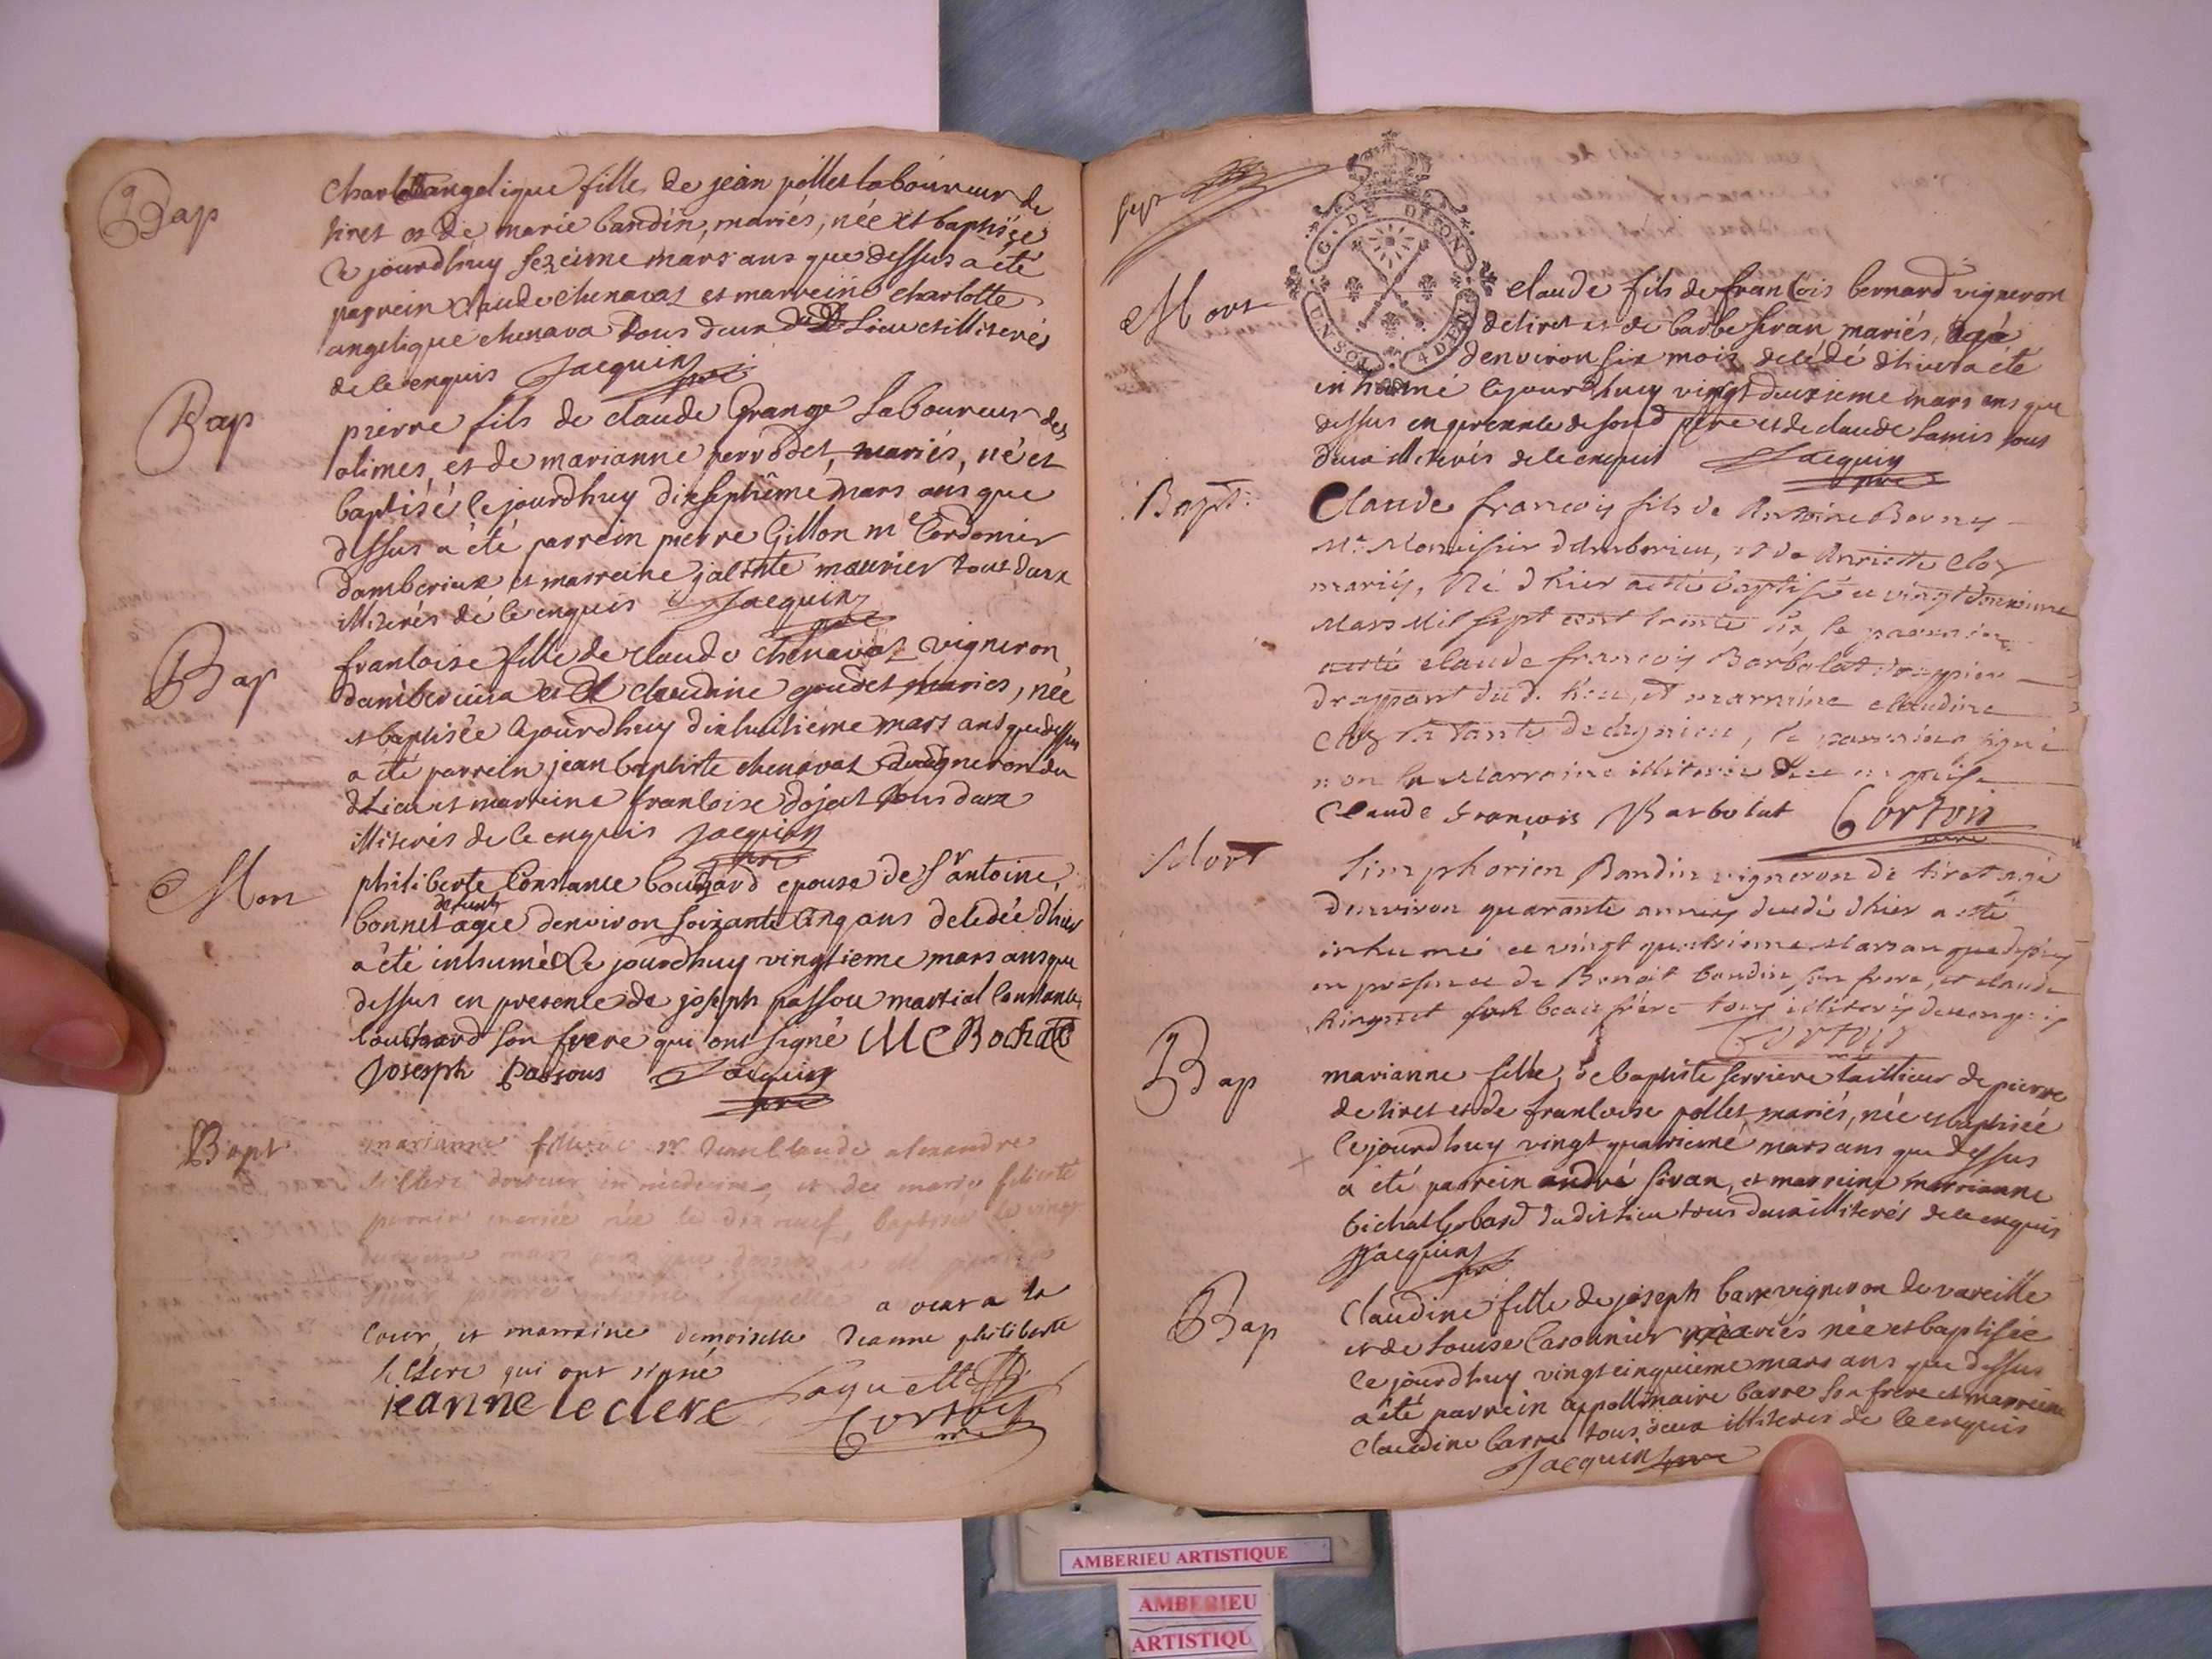 Bap
charlotte angelique fille de jean pollet laboureur de
tiret et de marie baudin, mariés, née et baptisée
le jourdhuy sezieme mars ans que dessus a été
parrein claude chenavat et marreine charlotte
angelique chenava tous deux dud lieu et illiterés
de ce enquis Jacquin pre
Bap
pierre fils de claude Grange laboureur des
alimes, et de marianne perrodet, mariés, né et
baptisé le jourdhuy dixseptieme mars ans que
dessus a été parrein pierre Gillon me Cordonier
damberieux et marreine maurier tout deux
illiterés de ce enquis Jacquin pre
Bap
francoise fille de claude chenavat vigneron
damberieux et de claudine goudet mariés, née
et baptisée le jourdhuy dixhuitieme mars ans que dessus
a été parrein jean baptiste chenavat vigneron du
d lieu et marreine francoise dojat tous deux
illiterés de ce enquis Jacquin pre
Mor
philiberte Constance bouchard epouse de Sr antoine
bonnet defunt agée denviron soixante cinq ans decedée dhier
a été inhumée le jourdhuy vingtieme mars ans que
dessus en presence de joseph passou martial Constance
bouchard son frere qui ont signé MC Bochard
Joseph Passous Jacquin pre
Bapt
marianne fille de Sr Jean Claude alexandre
leclerc docteur in medecine, et de marie
mariée née le dix neuf, baptisée le vingt
deuxieme mars ans que dessus a été parrain
sieur pierre antoine Laquette avocat a la
Cour, et marraine demoiselle Jeanne philiberte
leclerc qui ont signé
jeanne leclerc Laguette
Cortois
Mort
G. DE DIJON
UN SOL 4 DEN
claude fils de francois bernard vigneron
de tiret et de barbe sivan mariés, agé
denviron six mois decedé dhier a été
inhumé le jourdhuy vingt deuxieme mars ans que
dessus en presence de son d pere et de claude Lamis tous
deux illiterés de ce enquis Jacquin pre
Bapt
Claude francois fils de Antoine Borny
Me Menuisier d'Amberieu, et de Anriette Cloz
mariés, Né d'hier a esté baptisé ce vingt deuxieme
Mars Mil sept cent trente six, le parrain
a esté claude francois Barbolat
drappant du d. lieu, et marraine claudine
Cloz sa tante de Lagnieu, le parrain a signé
non la Marraine illiterée de ce enquise
Claude francois Barbolat Cortois
Mort
Simphorien Baudin vigneron de tiret agé
d'environ quarante années decedé d'hier a esté
inhumé ce vingt quatrieme Mars an que dessus
en presence de Benoit baudin, son frere, et claude
son beau frere tous illiterés de ce enquis
Cortois
Bap
marianne fille de baptiste ferriere taillieur de pierre
de tiret et de francoise pollet mariés, née et baptisée
le jourdhuy vingt quatrieme mars ans que dessus
a été parrein andré sivan, et marreine marrianne
bichat Gobard dudit lieu tous deux illiterés de ce enquis
Jacquin pre
Bap
Claudine fille de joseph barre vigneron de vareille
et de Louise mariés née et baptisée
le jourdhuy vingt cinquieme mars ans que dessus
a été parrein appollinaire barre son frere et marreine
Claudine barre tous deux illiterés de ce enquis
Jacquin pre
AMBERIEU ARTISTIQUE
AMBERIEU
ARTISTIQU